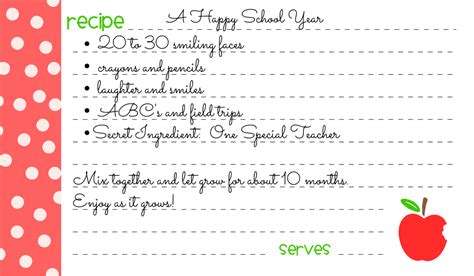 recipe A Happy School Year
• 20 to 30 smiling faces
• crayons and pencils
• laughter and smiles
• ABC's and field trips
• Secret Ingredient: One Special Teacher
Mix together and let grow for about 10 months.
Enjoy as it grows!
serves